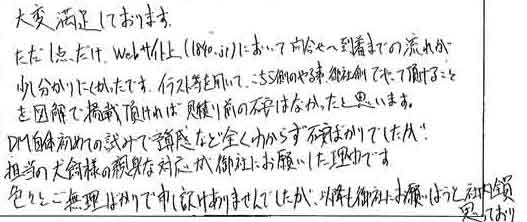 大変満足しております。
ただ1点だけ、Webサイト上(1840.jp)において問合せ〜到着までの流れが
少し分かりにくかったです。イラスト等を用いて、こちら側のやる事、御社側でやって頂けること
を図解で掲載頂ければ見積り前の不安はなかったと思います。
DM自体初めての試みで予算感など全くわからず不安ばかりでしたが、
担当の犬飼様の親身な対応が御社にお願いした理由です
色々とご無理ばかりで申し訳ありませんでしたが、以降も御社にお願いしようと社内全員
思っており